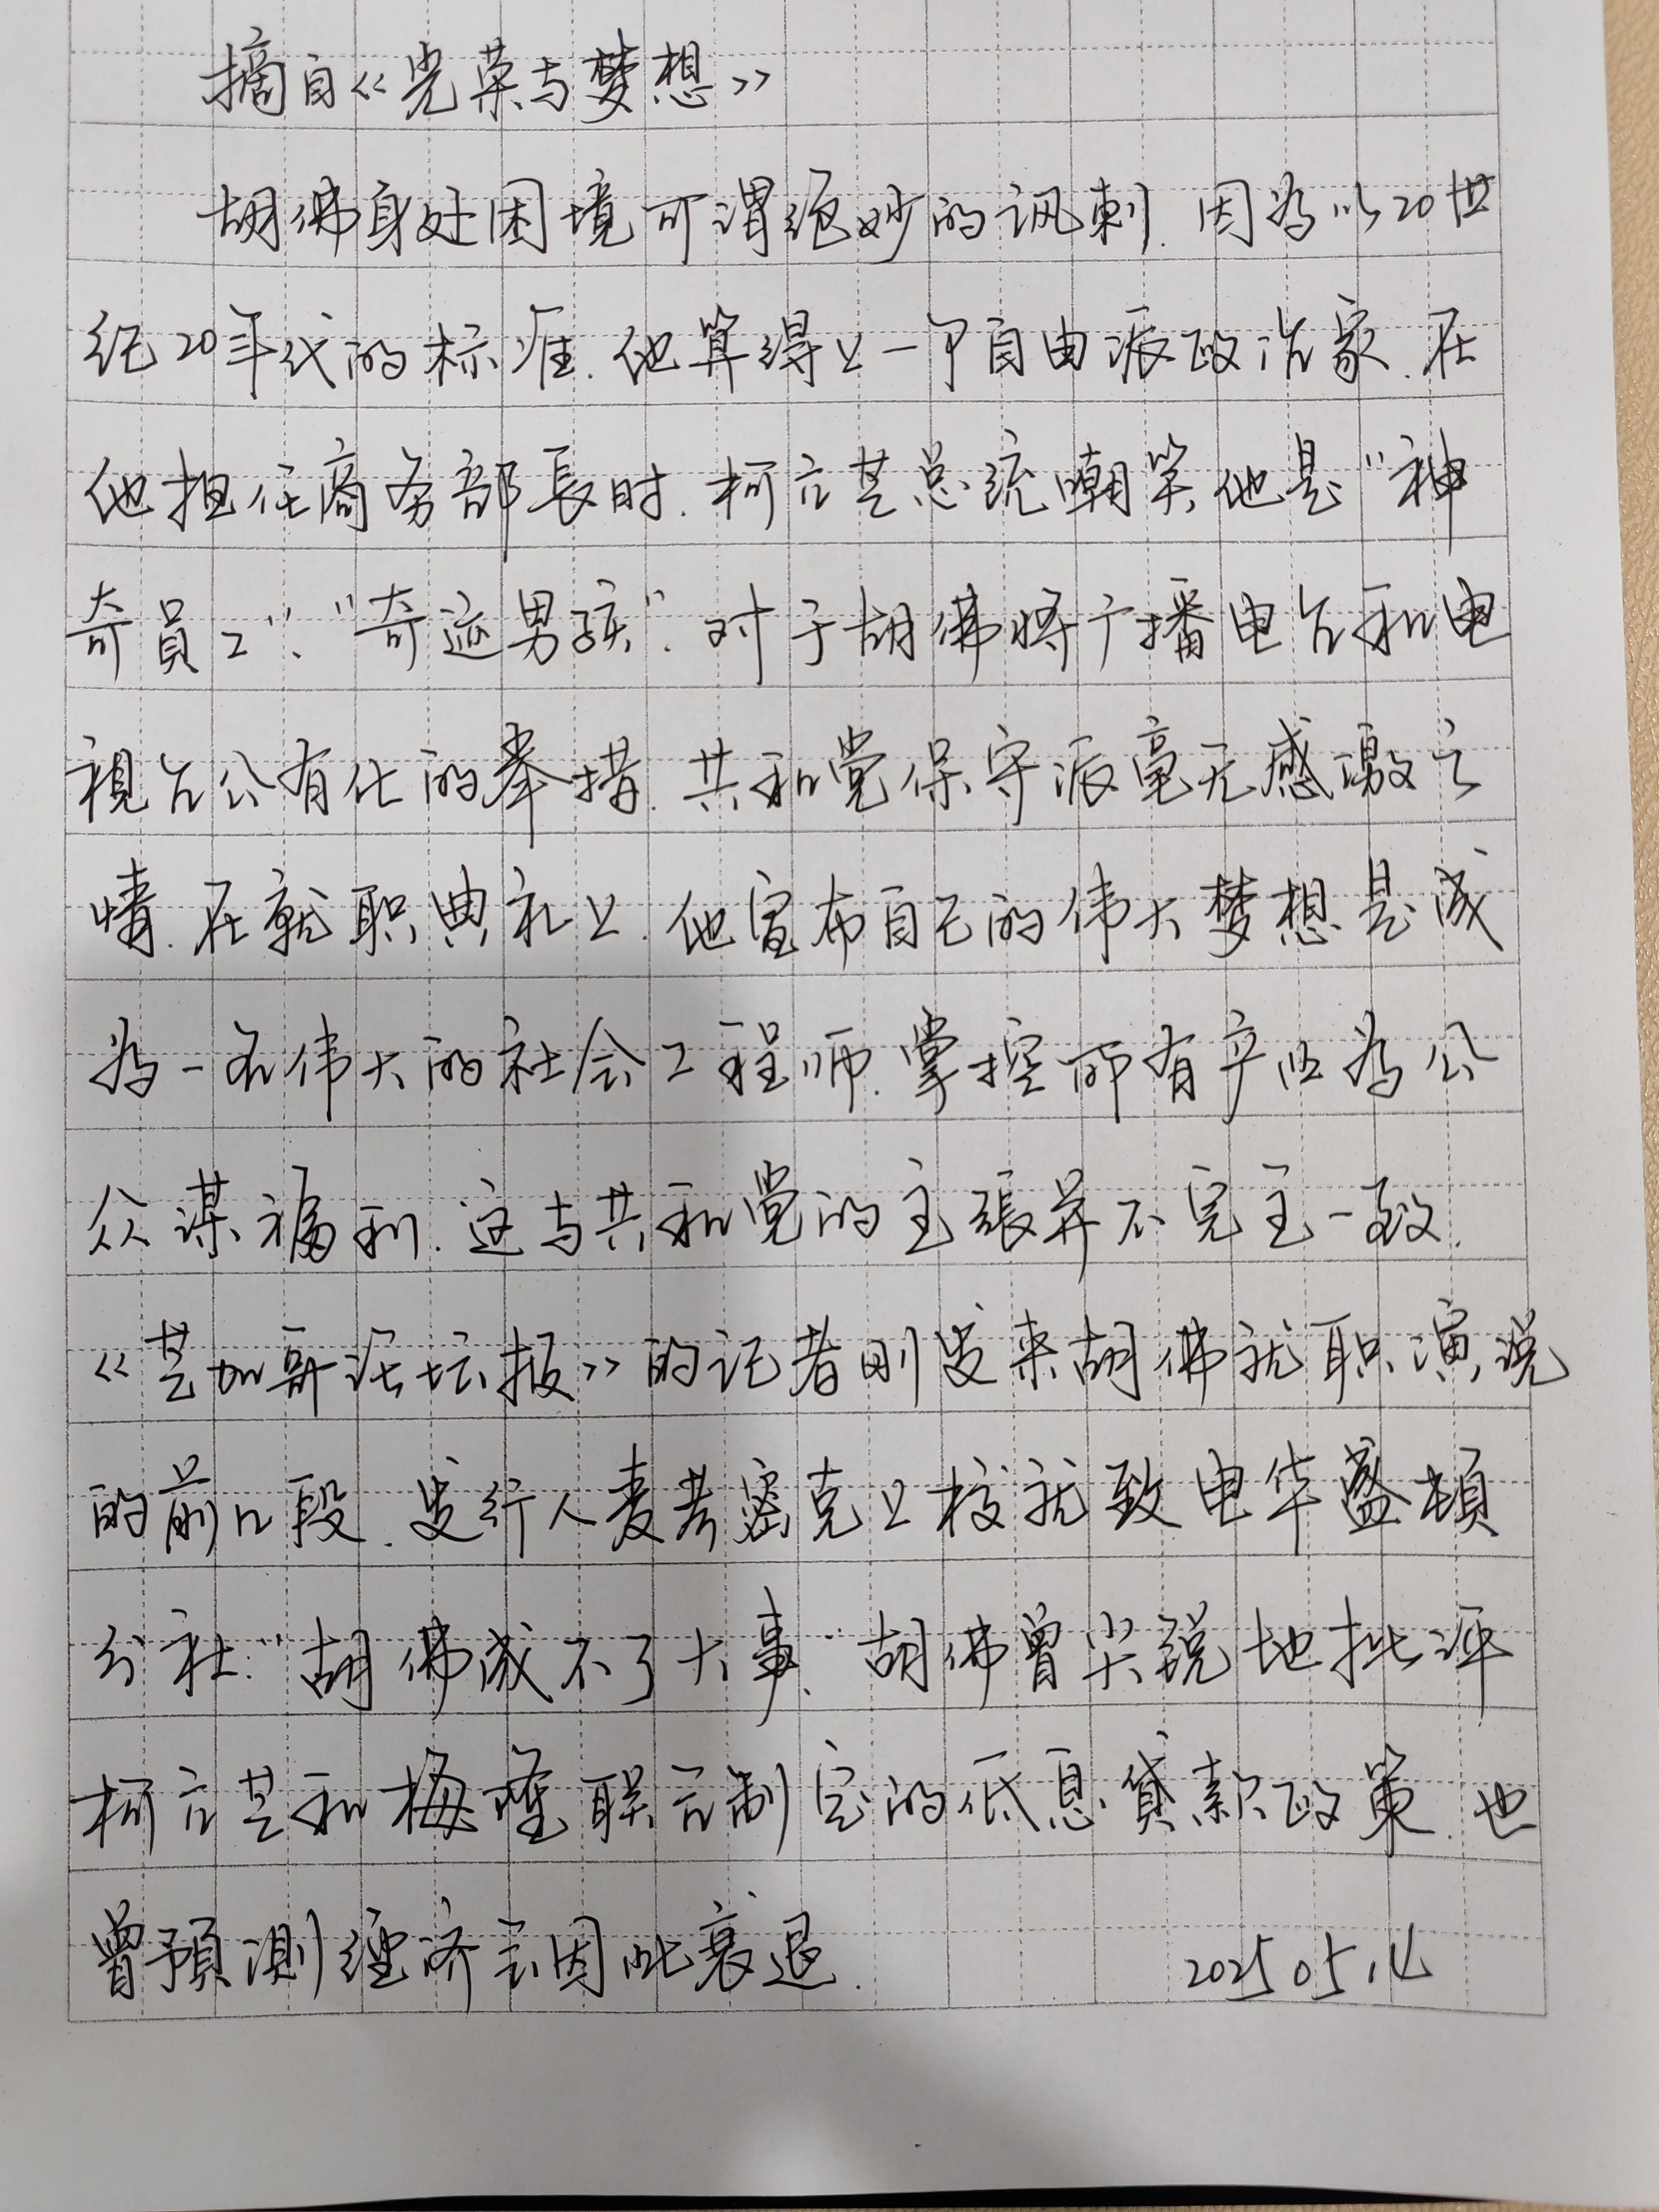 摘自《光荣与梦想》
胡佛身处困境可谓绝妙的讽刺.因为以20世
纪20年代的标准.他算得上一个自由派政治家.在
他担任商务部長时.柯立芝总统嘲笑他是“神
奇員工”、“奇迹男孩”.对于胡佛将广播电台和电
視台公有化的举措.共和党保守派毫无感激之
情.在就职典礼上.他宣布自己的伟大梦想是成
为一名伟大的社会工程师.掌控所有产业为公
众谋福利.这与共和党的主張并不完全一致.
《芝加哥论坛报》的记者刚发来胡佛就职演说
的前几段.发行人麦考密克上校就致电华盛頓
分社:“胡佛成不了大事.”胡佛曾尖锐地批评
柯立芝和梅隆联合制定的低息貸款政策.也
曾預測经济会因此衰退.
2025.05.14